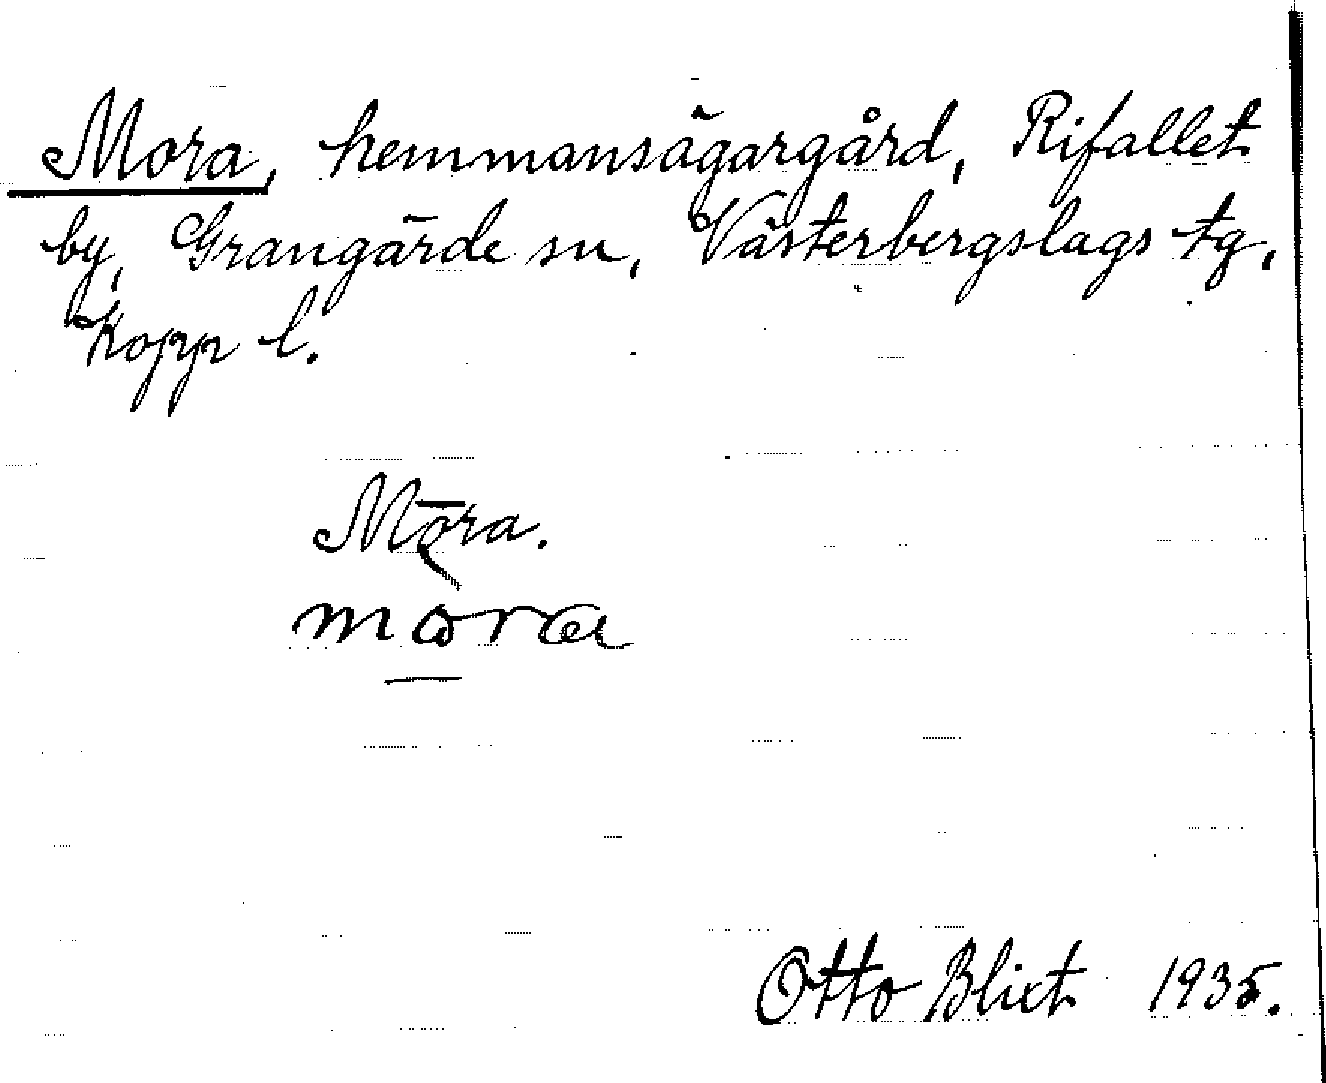 Mora, hemmansägargård, Rifallet
by, Grangärde sn, Västerbergslags tg,
Kopp l.
Mōra.
mora
Otto Blixt 1935.